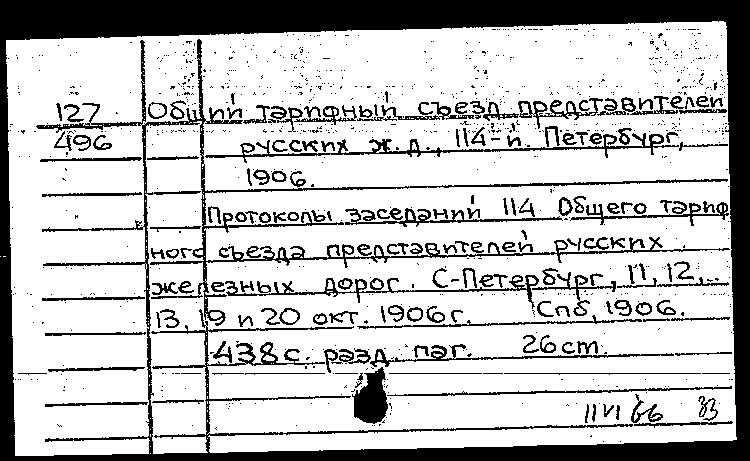 127 Общий тарифный съезд представителей
496 русских ж.д., 114-й. Петербург,
1906.
Протоколы заседаний 114 Общего тариф
ного съезда представителей русских
железных дорог. С-Петербург, 11, 12,
13, 19 и 20 окт. 1906 г. Спб, 1906.
438 с. разд. паг. 26 cm.
11 VI 66